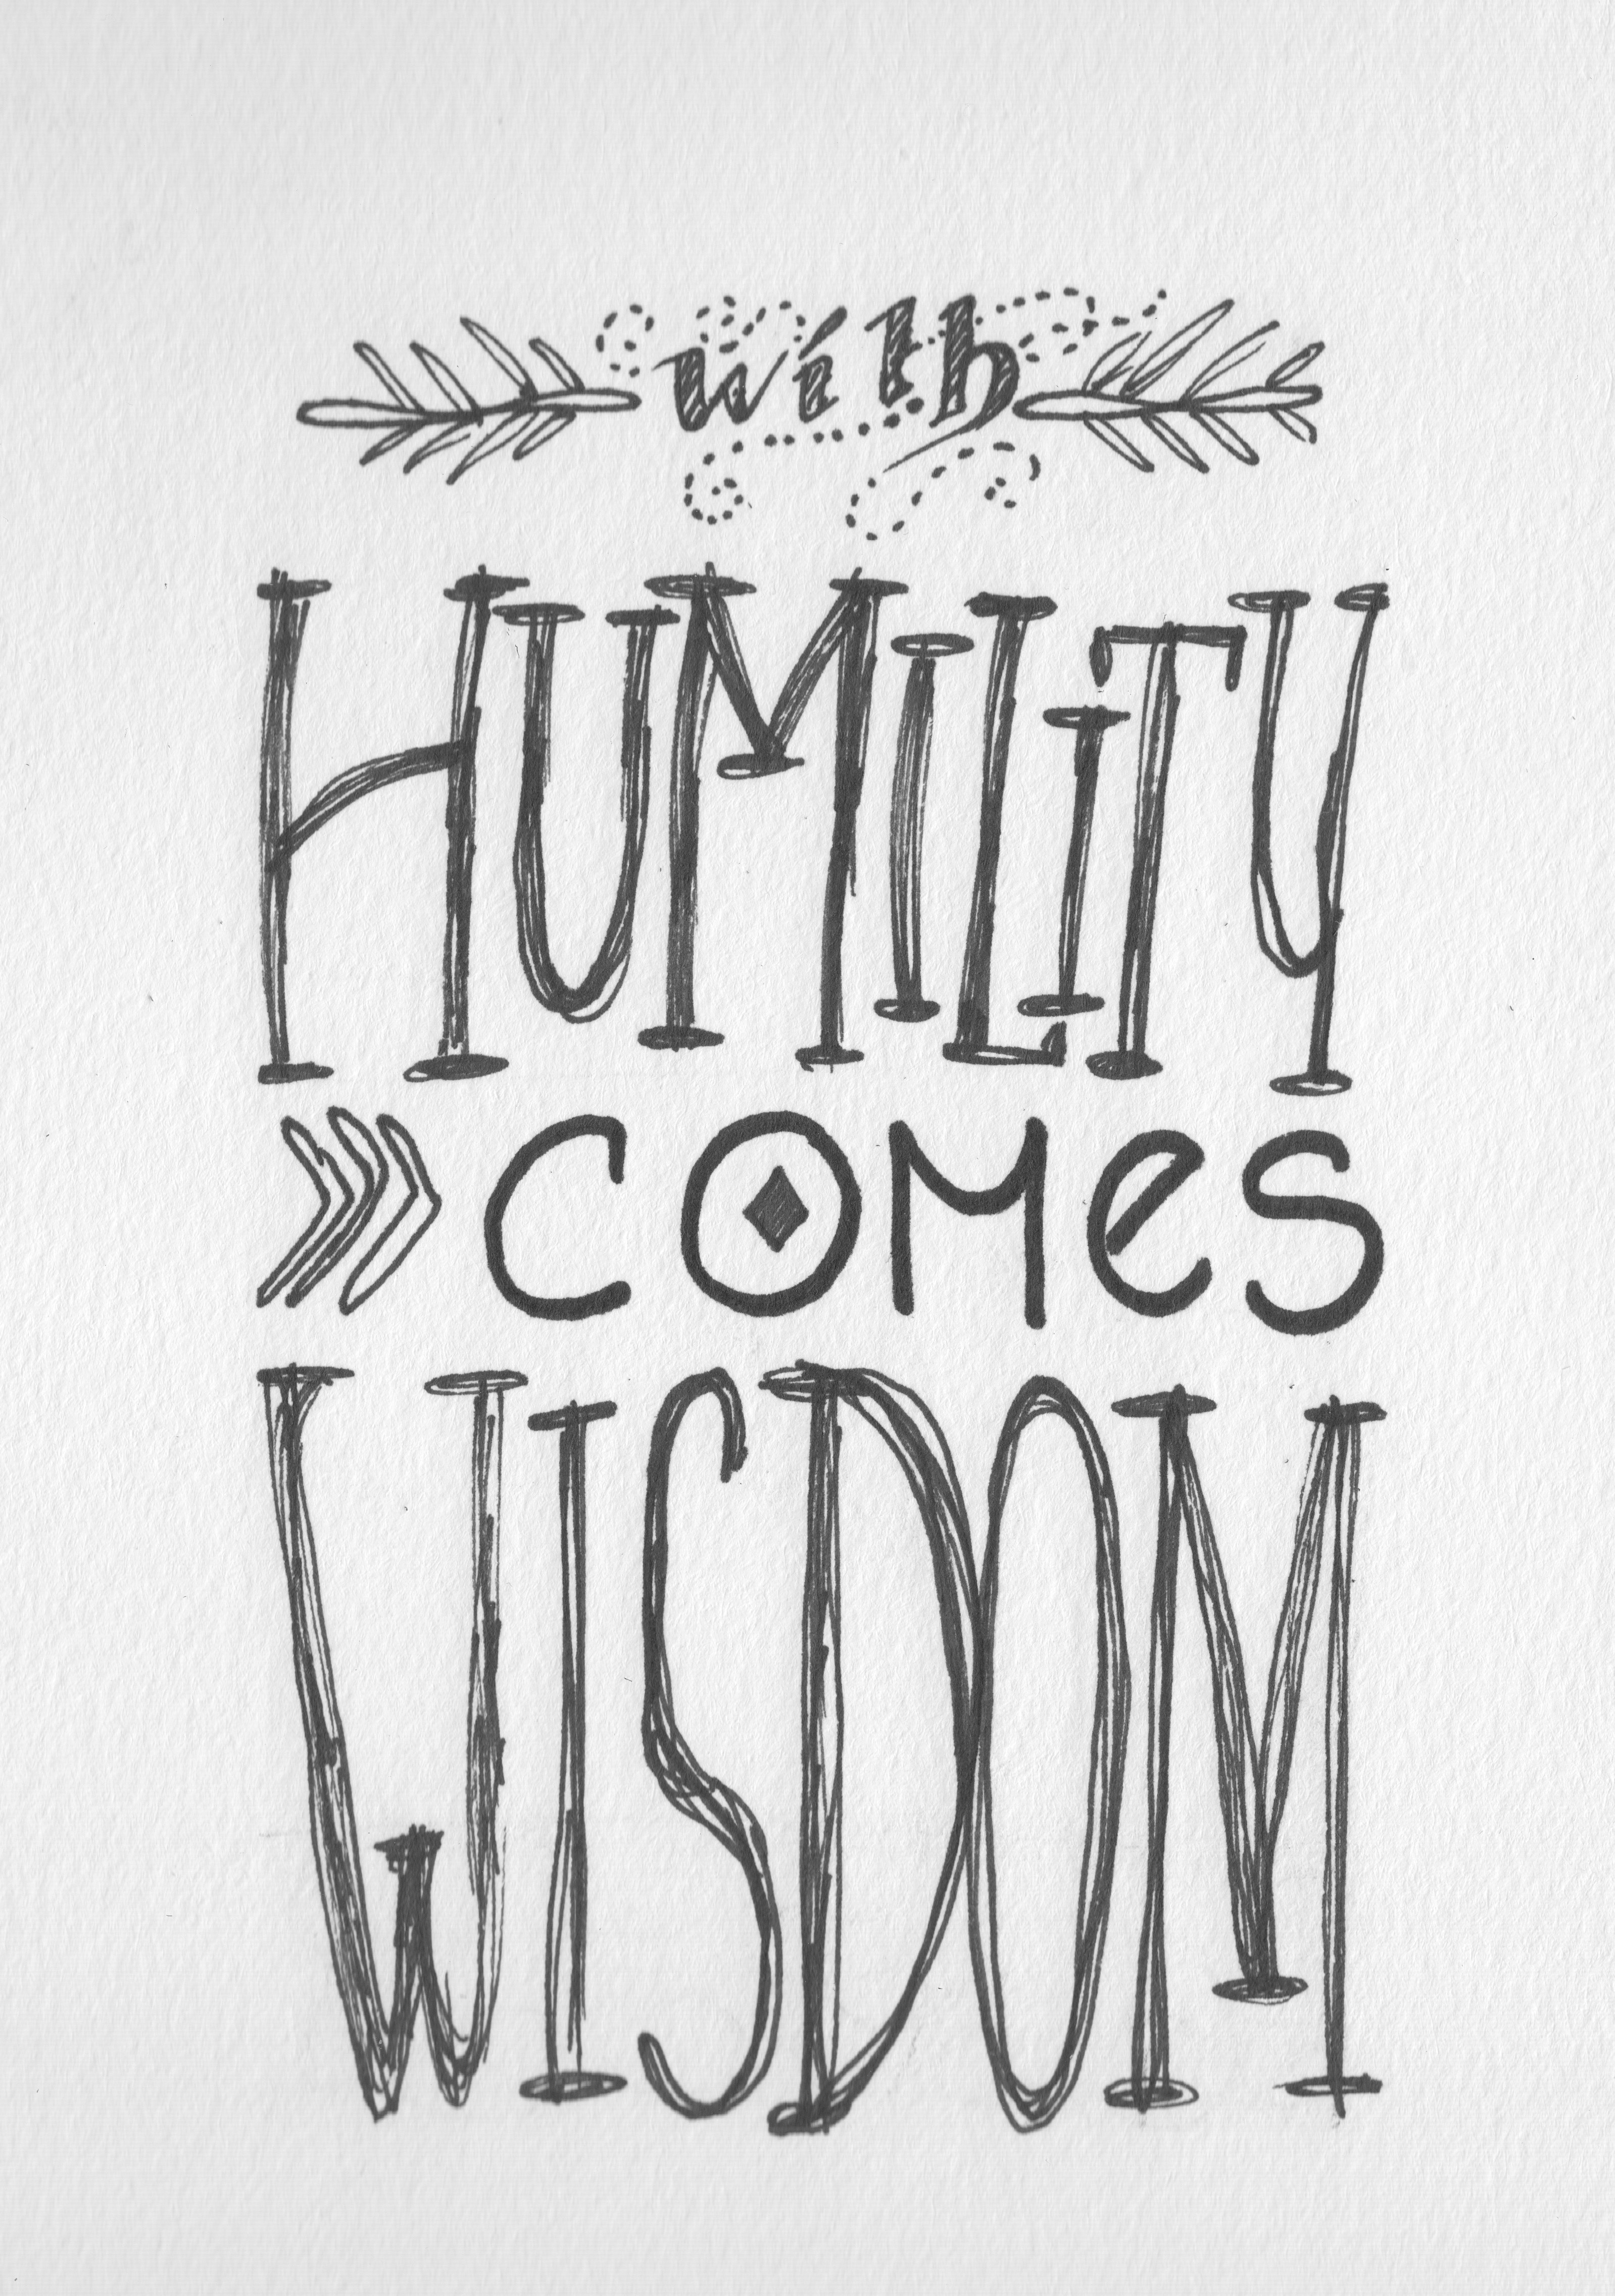 with
HUMiLiTY
COMeS
WISDOM